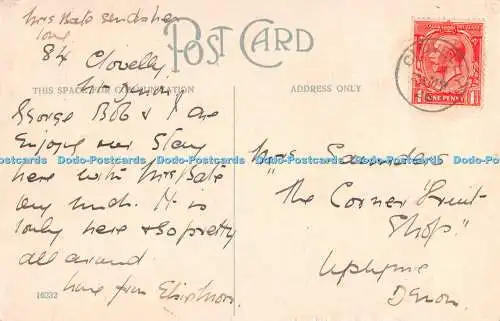 Mrs Bate sends her
love
POST CARD
84 Clovelly
THIS SPACE FOR COMMUNICATION
ADDRESS ONLY
George Bob & I are
Enjoying our Stay
here with Mrs Bate
very much. It is
lovely here & so pretty
all around
love from
16332
Mrs Saunders
"The Corner Fruit
Shop."
Uplyme
Devon
ONE PENNY
Dodo-Postcards Dodo-Postcards Dodo-Postcards Dodo-Postcards Dodo-Postcards